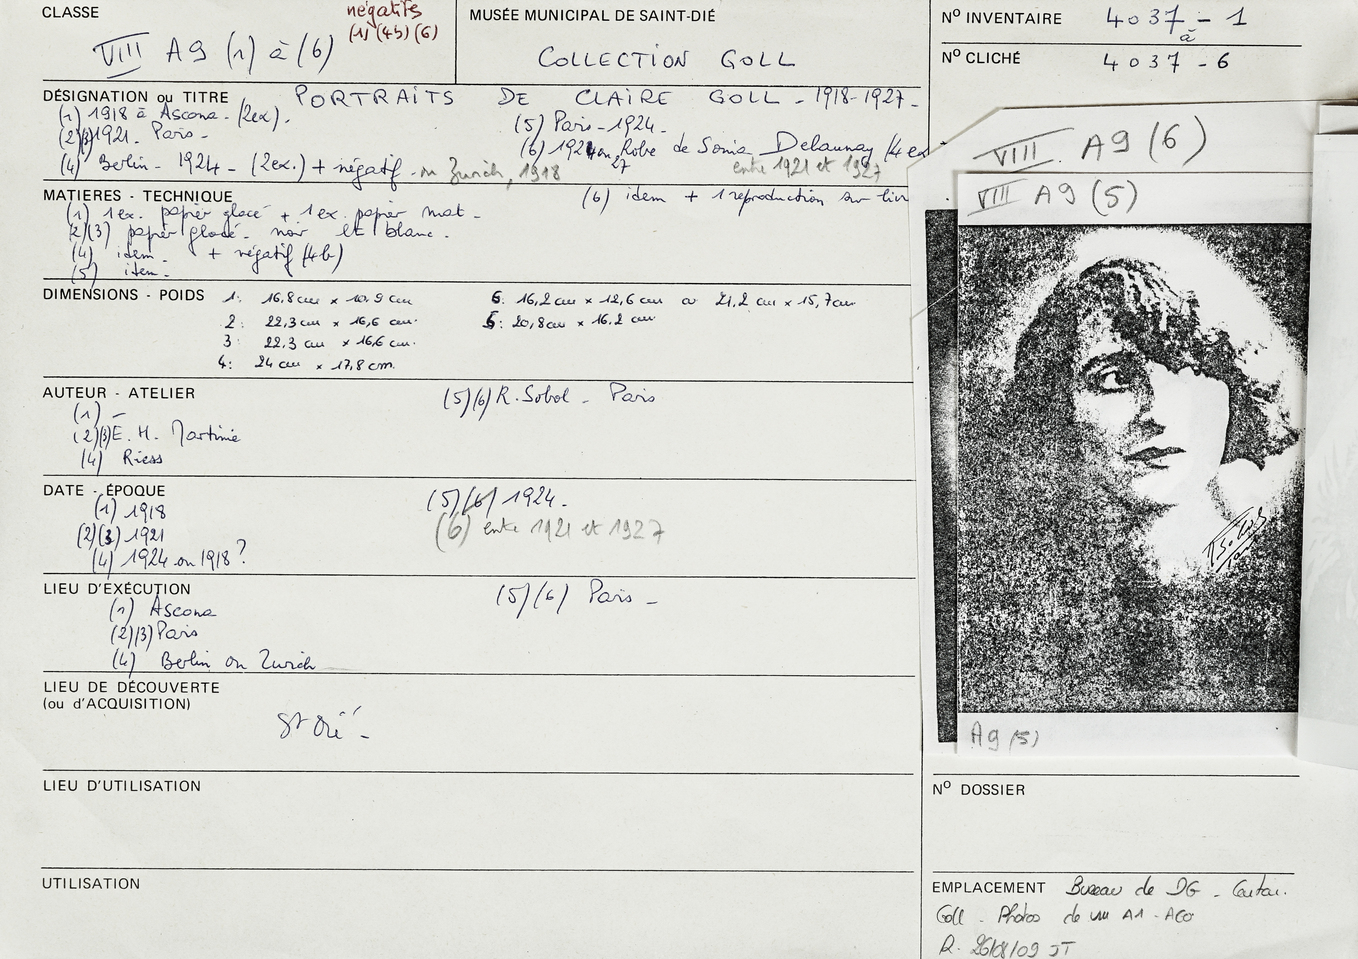 CLASSE
négatifs
(1) (4b) (6)
VIII A9 (1) à (6)
MUSÉE MUNICIPAL DE SAINT-DIÉ
COLLECTION GOLL
Nº INVENTAIRE 4037 - 1
à
Nº CLICHÉ 4037 - 6
DÉSIGNATION ou TITRE PORTRAITS DE CLAIRE GOLL - 1918-1927 -
(1) 1918 à Ascona - (2ex).
(2)(3) 1921. Paris -
(4) Berlin - 1924 - (2ex.) + négatif - ou Zurich, 1918
(5) Paris - 1924 -
(6) 1924 ou 27 Robe de Sonia Delaunay (4 ex
entre 1921 et 1927
MATIERES - TECHNIQUE
(1) 1 ex. papier glacé + 1 ex. papier mat -
2)(3) papier glacé - noir et blanc -
(4) idem - + négatif (4b)
(5) idem -
(6) idem + 1 reproduction sur
DIMENSIONS - POIDS
1: 16,8 cm × 10,9 cm
2: 22,3 cm × 16,6 cm.
3: 22,3 cm × 16,6 cm.
4: 24 cm × 17,8 cm.
6: 16,2 cm × 12,6 cm ou 21,2 cm × 15,7 cm
5: 20,8 cm × 16,2 cm
AUTEUR - ATELIER
(1) -
(2)(3) E. H. Martinie
(4) Riess
(5)(6) R. Sobol - Paris
DATE - ÉPOQUE
(1) 1918
(2)(3) 1921
(4) 1924 ou 1918 ?
(5)(6) 1924 -
(6) entre 1921 et 1927
LIEU D'EXÉCUTION
(1) Ascona
(2)(3) Paris
(4) Berlin ou Zurich
(5)(6) Paris -
LIEU DE DÉCOUVERTE
(ou d'ACQUISITION)
St Dié -
LIEU D'UTILISATION
UTILISATION
VIII A9 (6)
VIII A9 (5)
A9 (5)
Nº DOSSIER
EMPLACEMENT Bureau de DG -
Goll - Photos de A1 -
R. 26/08/09 JT